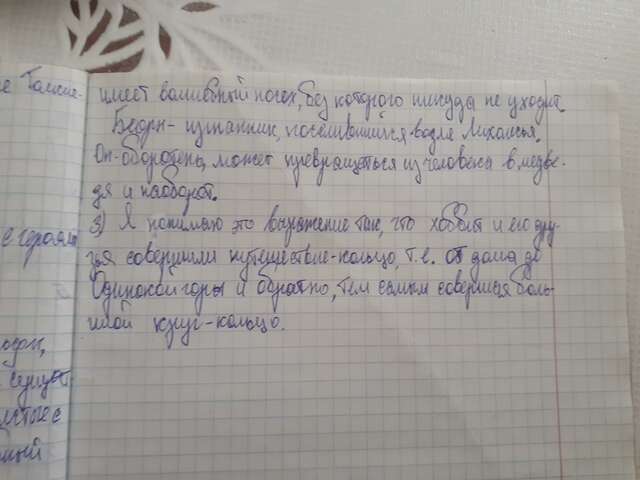 е Толкие-
имеет волшебный посох, без которого никуда не уходит.
Беорн - изгнанник, поселившийся возле Лихолесья.
Он-оборотень, может превращаться из человека в медве-
дя и наоборот.
3) Я понимаю это выражение так, что хоббит и его дру-
с героями
зья совершили путешествие-кольцо, т.е. от дома до
Одинокой горы и обратно, тем самым совершая боль-
шой круг-кольцо.